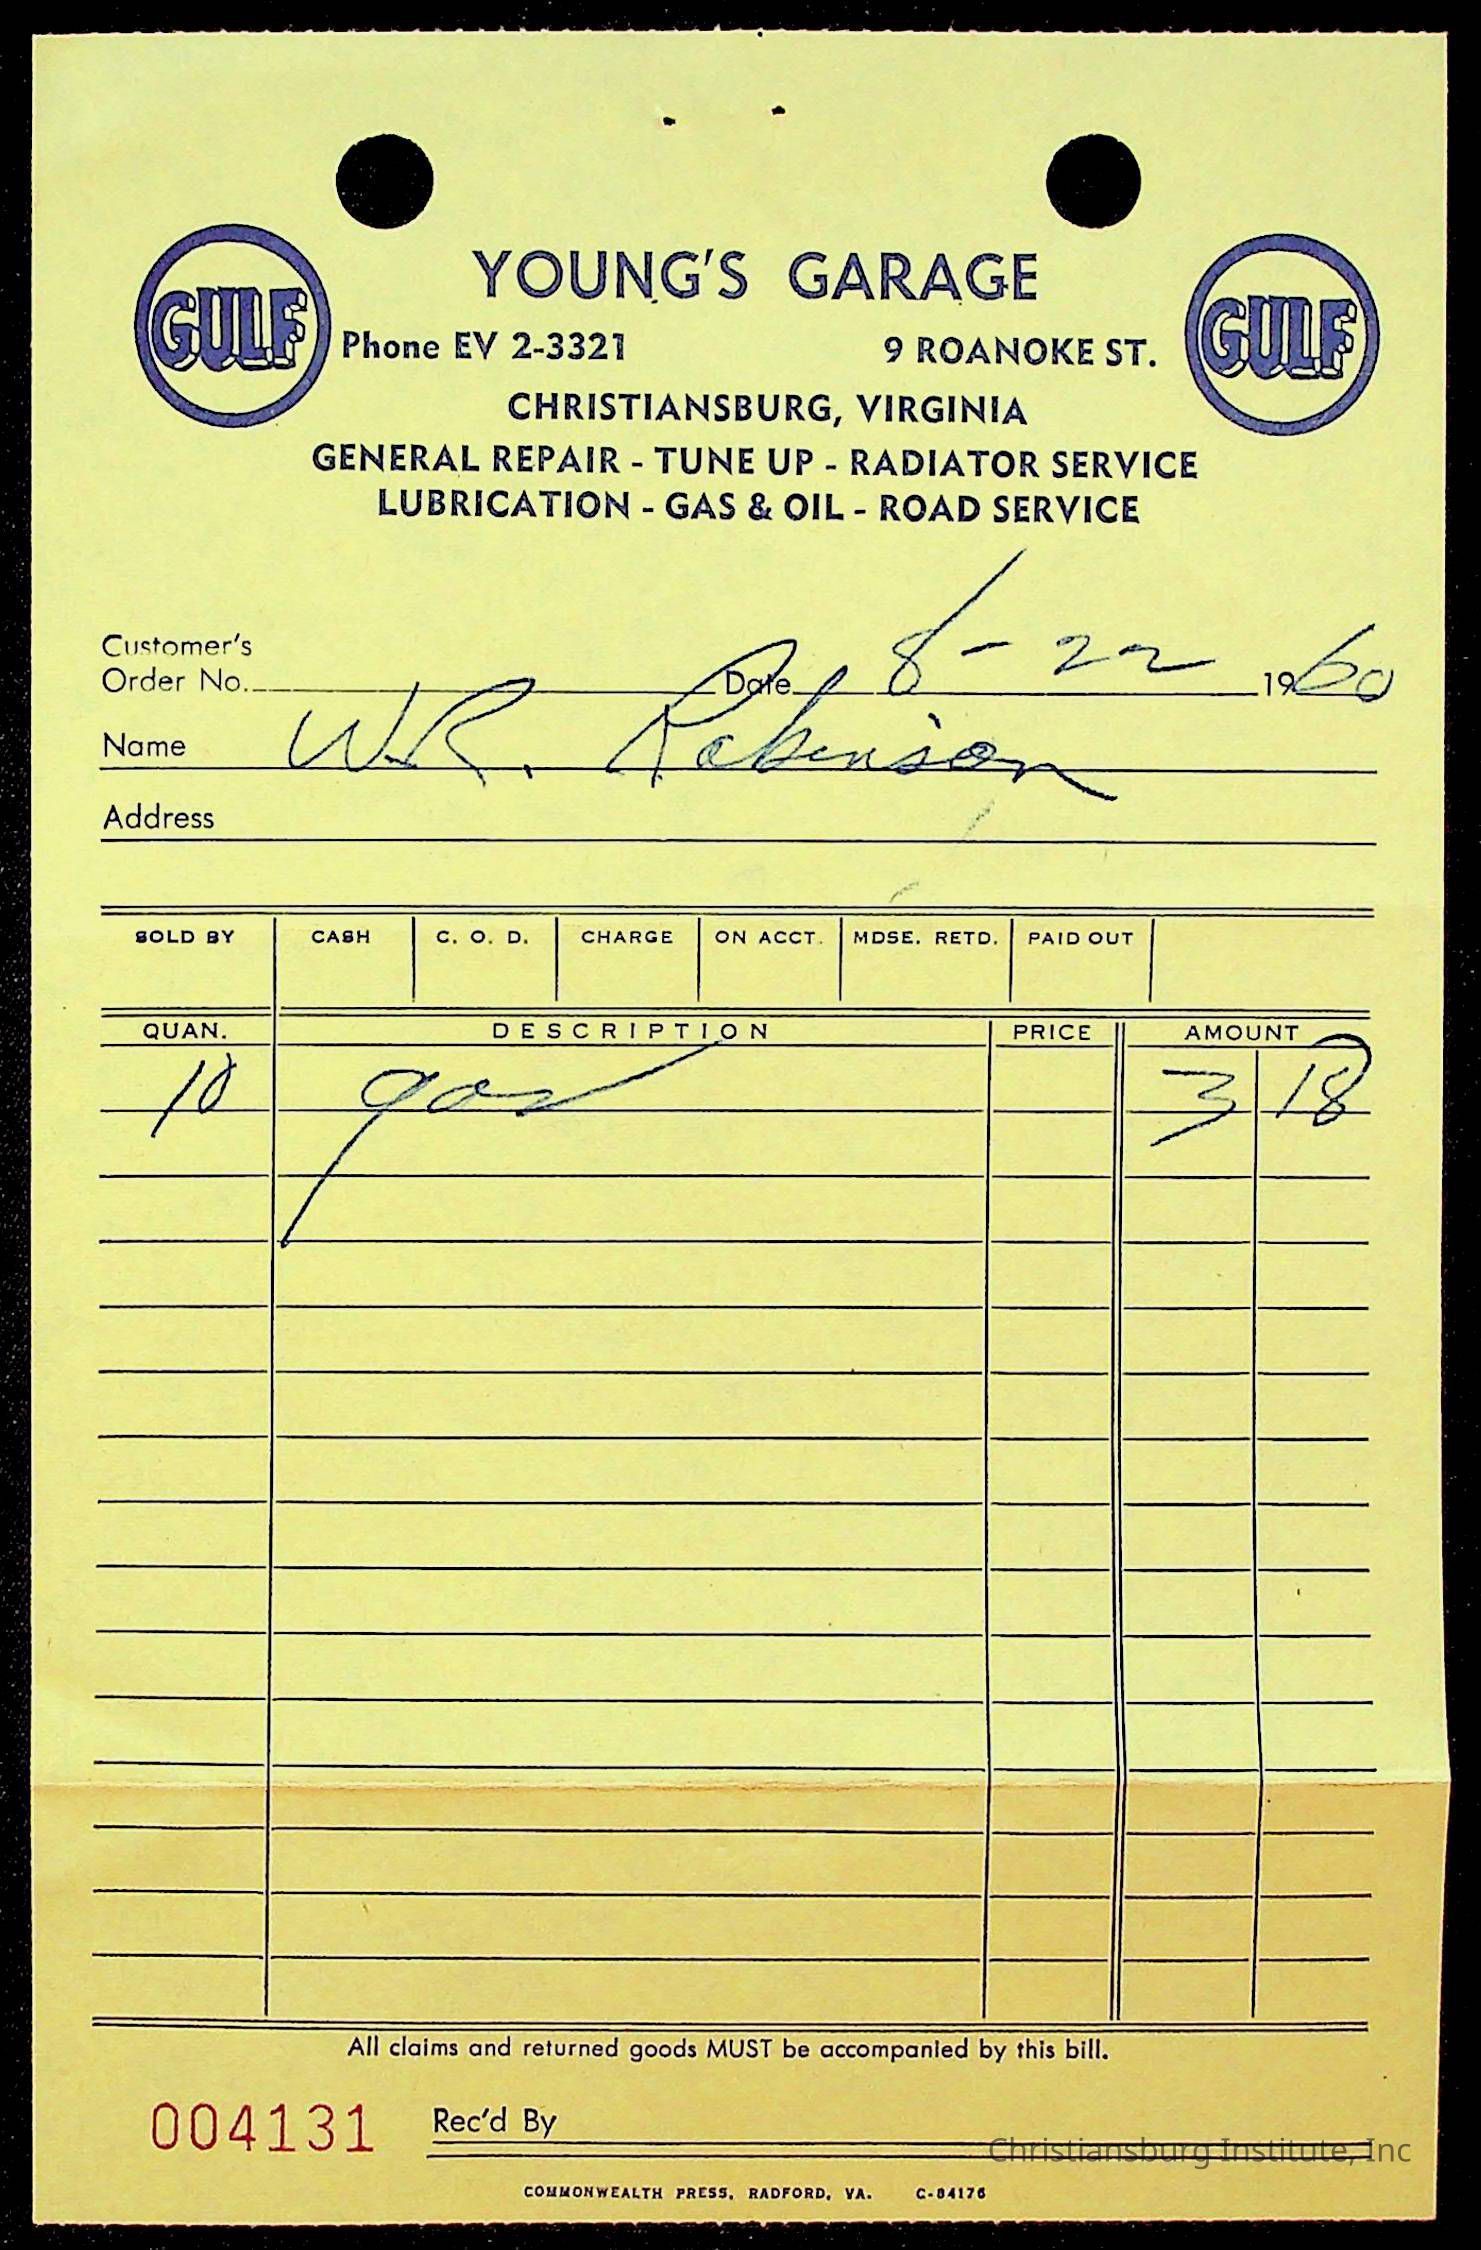 YOUNG'S GARAGE
GULF
GULF
Phone EV 2-3321 9 ROANOKE ST.
CHRISTIANSBURG, VIRGINIA
GENERAL REPAIR - TUNE UP - RADIATOR SERVICE
LUBRICATION - GAS & OIL - ROAD SERVICE
Customer's
Order No. Date 8-22 1960
Name W.R. Robinson
Address
SOLD BY CASH C. O. D. CHARGE ON ACCT. MDSE. RETD. PAID OUT
QUAN. DESCRIPTION PRICE AMOUNT
10 gas 3 18
All claims and returned goods MUST be accompanied by this bill.
004131 Rec'd By
Christiansburg Institute, Inc
COMMONWEALTH PRESS, RADFORD, VA. C-84176